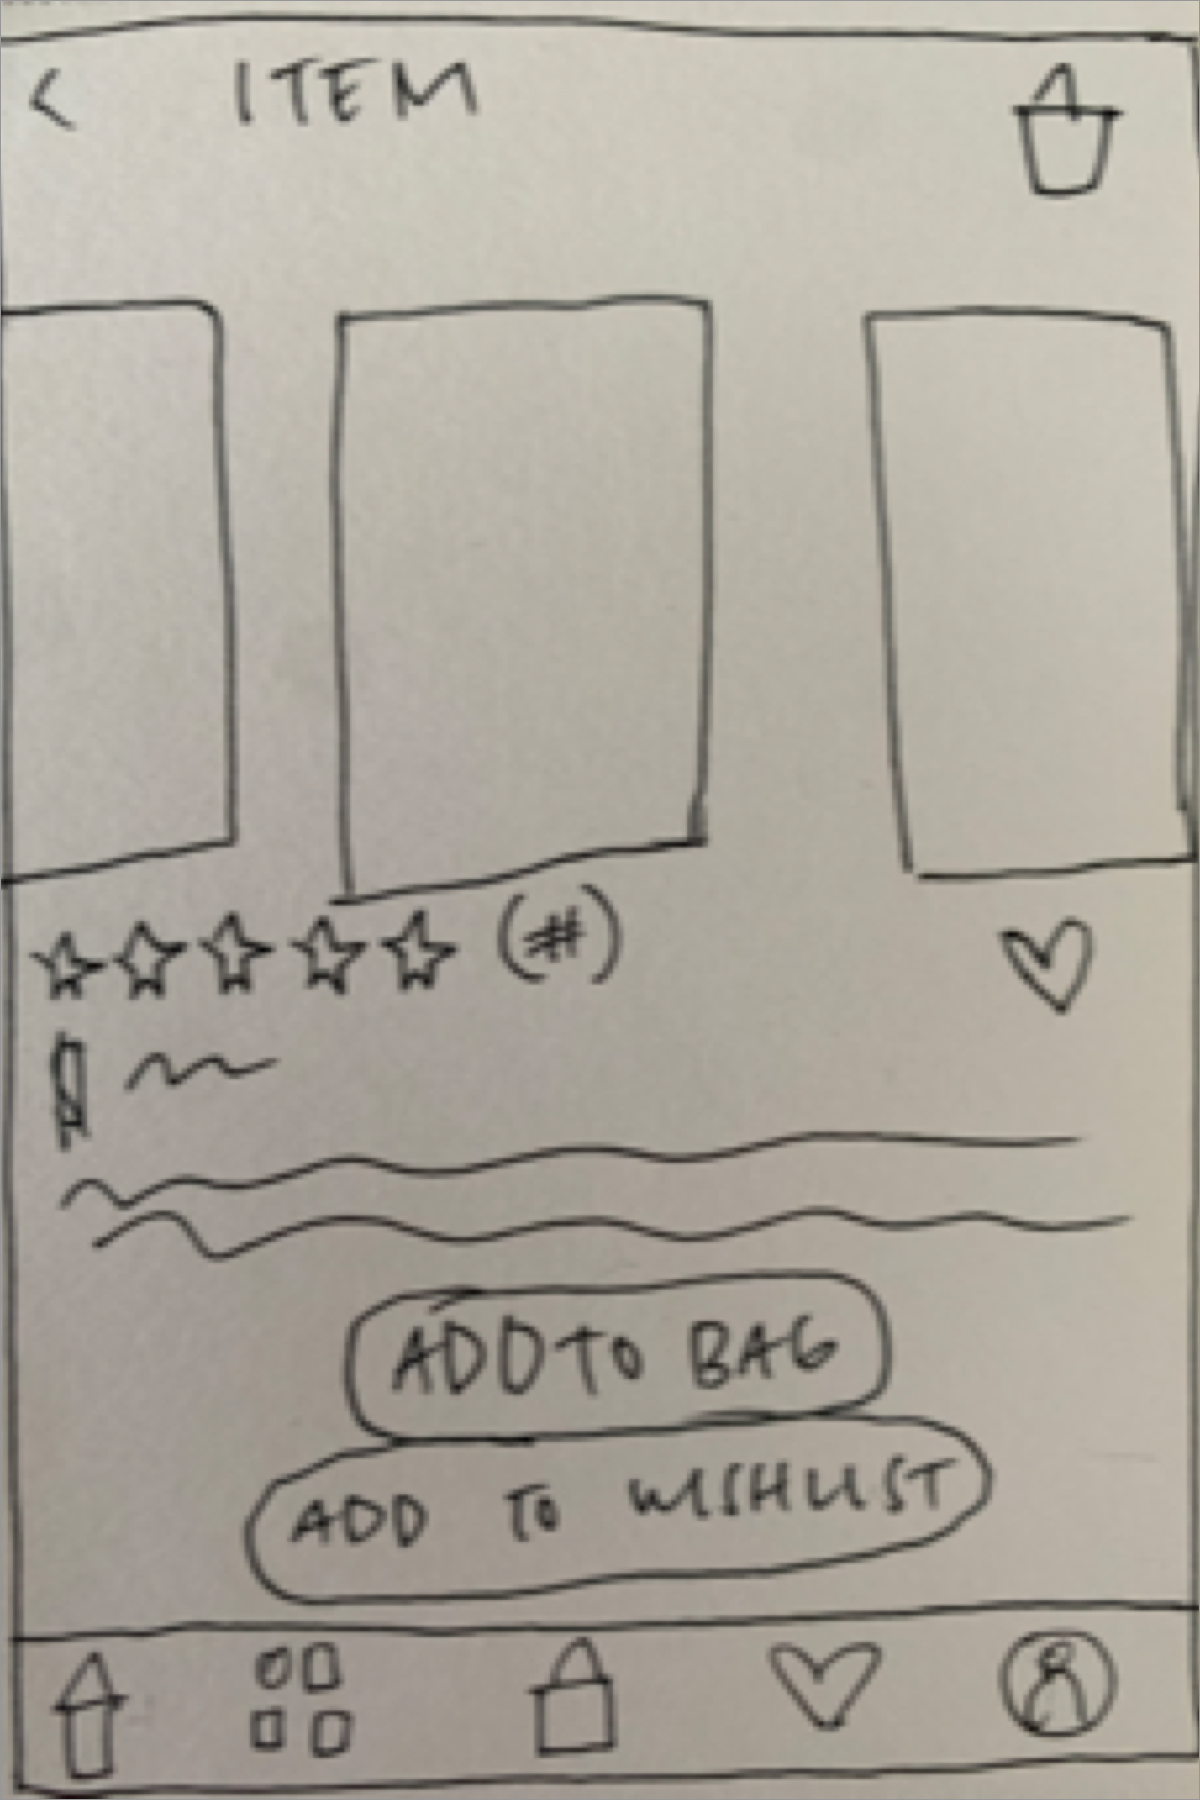 < ITEM
(#)
ADD TO BAG
ADD TO WISHLIST